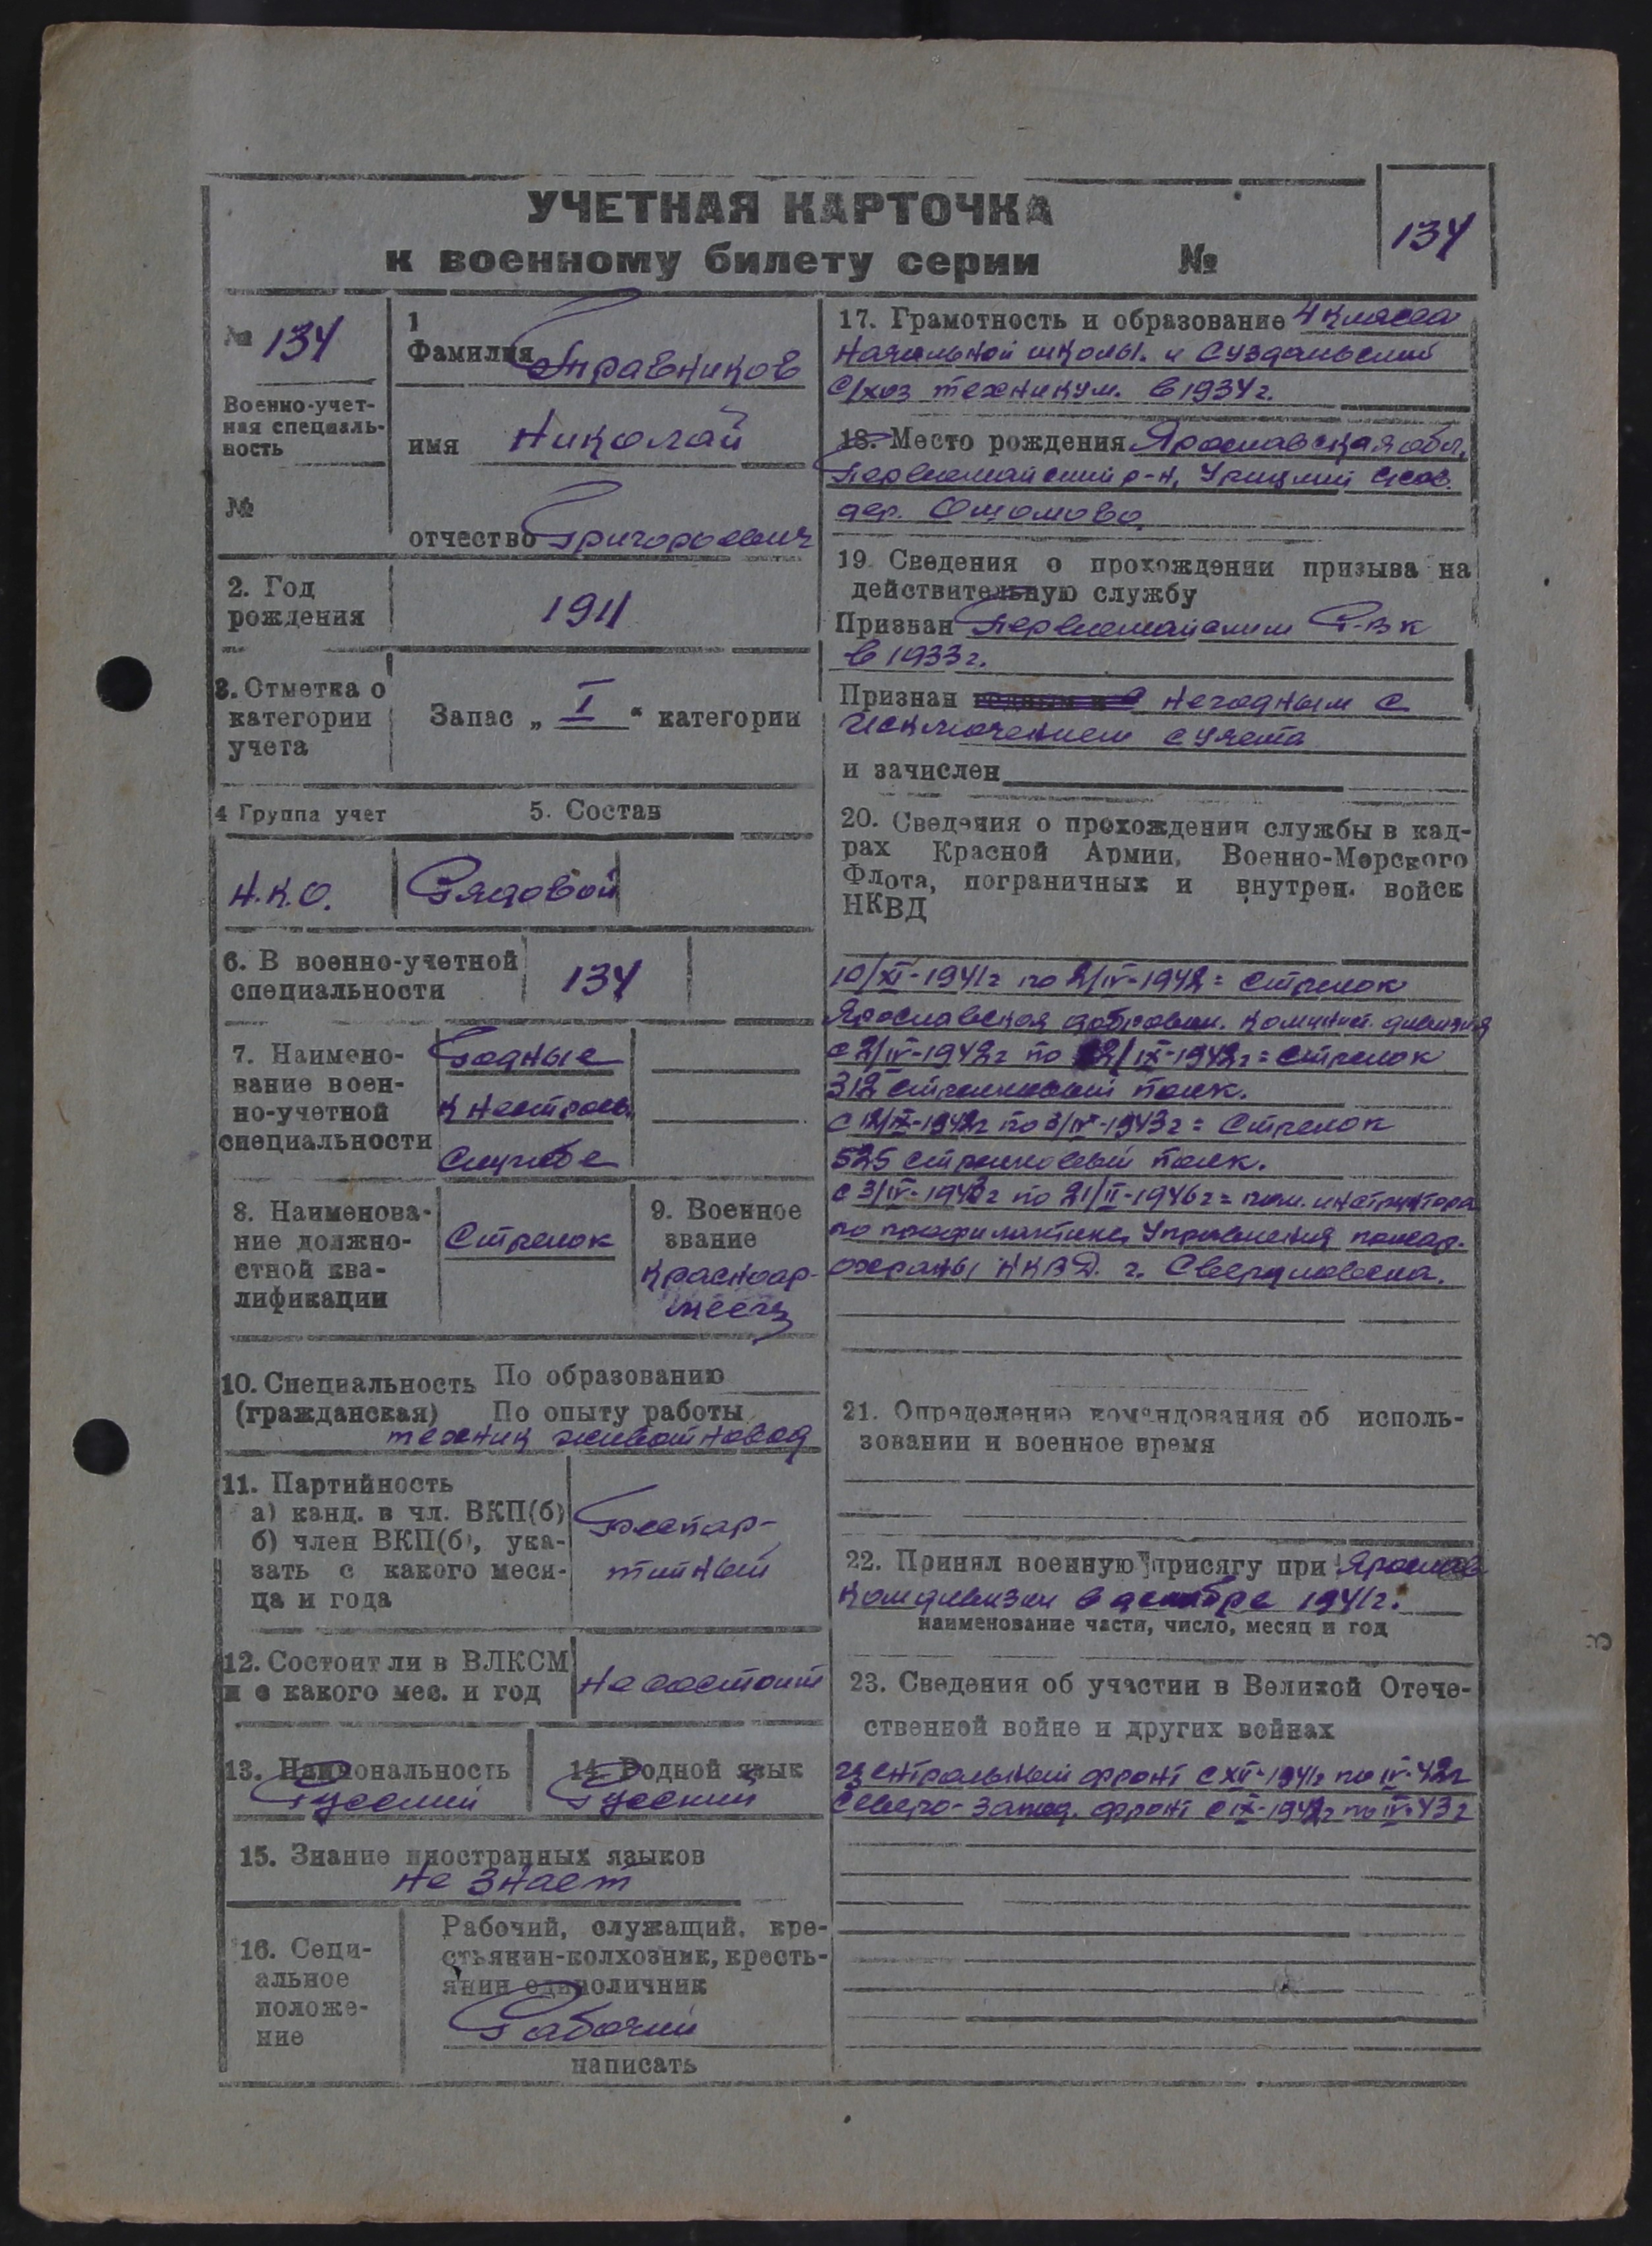 УЧЕТНАЯ КАРТОЧКА
к военному билету серии №
134
№ 134
Военно-учет-
ная специаль-
ность
№
1
Фамилия Травников
имя Николай
отчество Григорьевич
2. Год
рождения
1911
3. Отметка о
категории
учета
Запас „ I " категории
4 Группа учет
5. Состав
Н.К.О.
Рядовой
6. В военно-учетной
специальности
134
7. Наимено-
вание воен-
но-учетной
специальности
Годные
к нестроев.
службе
8. Наименова-
ние должно-
стной ква-
лификации
Стрелок
9. Военное
звание
красноар-
меец
10. Специальность По образованию
(гражданская) По опыту работы
техник животновод
11. Партийность
а) канд. в чл. ВКП(б)
б) член ВКП(б), ука-
зать с какого меся-
ца и года
Беспар-
тийный
12. Состоит ли в ВЛКСМ
и с какого мес. и год
не состоит
13. Национальность
Русский
14. Родной язык
Русский
15. Знание иностранных языков
не знает
16. Соци-
альное
положе-
ние
Рабочий, служащий, кре-
стьянин-колхозник, кресть-
янин единоличник
Рабочий
написать
17. Грамотность и образование 4 класса
начальной школы. и Суздальский
с/хоз техникум. в 1934 г.
18. Место рождения Ярославская обл,
Первомайский р-н, Урицкий
дер.
19. Сведения о прохождении призыва на
действительную службу
Призван Первомайским Р.В.К
в 1933 г.
Признан негодным с
исключением с учета
и зачислен
20. Сведения о прохождении службы в кад-
рах Красной Армии, Военно-Морского
Флота, пограничных и внутрен. войск
НКВД
10/XI-1941г по 2/IV-1942 = стрелок
Ярославская добровол. комунист. дивизия
с 2/IV-1942г по 12/IX-1942г = стрелок
312 стрелковый полк.
с 12/IX-1942г по 3/IV-1943г = Стрелок
525 стрелковый полк.
с 3/IV-1943г по 21/II-1946г = пом. инструктора
по профилактике Управления пожар.
охраны НКВД. г. Свердловска.
21. Определение командования об исполь-
зовании и военное время
22. Принял военную присягу при Ярослав
комдивизии в декабре 1941г.
наименование части, число, месяц и год
23. Сведения об участии в Великой Отече-
ственной войне и других войнах
Центральный фронт с XII-1941г по IV-42г
Северо-запад. фронт с IX-1942г по IV-43г
3